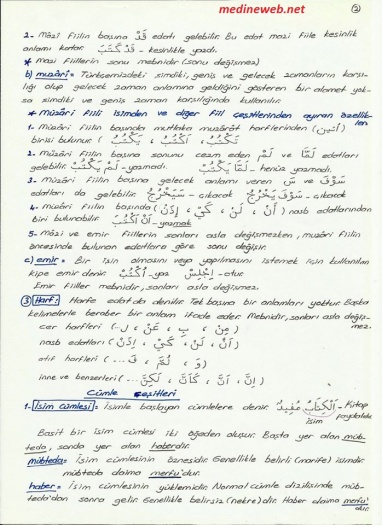 medineweb.net
②
2- Mâzî Fiilin başına قَدْ edatı gelebilir. Bu edat mazi fiile kesinlik
anlamı katar. قَدْ كَتَبَ - kesinlikle yazdı.
* Mazi Fiillerin sonu mebnidir (sonu değişmez)
b) muzârî = Türkçemizdeki şimdiki, geniş ve gelecek zamanların karşı-
lığı olup gelecek zaman anlamına geldiğini gösteren bir alamet yok-
sa şimdiki ve geniş zaman karşılığında kullanılır.
* Müzâri Fiili isimden ve diğer fiil çeşitlerinden ayıran özellik-
ler
1- Müzâri Fiilin başında mutlaka muzârât harflerinden (أتين)
birisi bulunur. ( يَكْتُبُ ، أَكْتُبُ ، تَكْتُبُ
2- müzâri fiilin başına sonunu cezm eden لَمْ ve لَمَّا edatları
gelebilir. لَمْ يَكْتُبْ - yazmadı. لَمَّا يَكْتُبْ - henüz yazmadı.
3- müzâri Fiilin başına gelecek anlamı veren سَ ve سَوْفَ
edatları da gelebilir. سَيَخْرُجُ - çıkacak سَوْفَ يَخْرُجُ - çıkacak.
4- müzâri Fiilin başında (أَنْ ، لَنْ ، كَيْ ، إِذَنْ) nasb edatlarından
biri bulunabilir. أَنْ أَكْتُبَ - yazmak
5- Mâzi ve emir Fiillerin sonları asla değişmezken, muzâri Fiilin
öncesinde bulunan edatlara göre sonu değişir.
c) emir = Bir işin olmasını veya yapılmasını istemek için kullanılan
kipe emir denir. اُكْتُبْ - yaz اِجْلِسْ - otur
Emir fiiller mebnidir, sonları asla değişmez.
③ Harf: Harfe edat da denilir. Tek başına bir anlamları yoktur. Başka
kelimelerle beraber bir anlam ifade eder. Mebnidir, sonları asla değiş-
mez.
cer harfleri ( مِنْ ، بِ ، عَنْ ، لِ ...)
nasb edatları (أَنْ ، لَنْ ، كَيْ ، إِذَنْ)
atıf harfleri ( وَ ، ثُمَّ ، فَ ...)
inne ve benzerleri ( إِنَّ ، أَنَّ ، كَأَنَّ ، لَكِنَّ ...)
Cümle Çeşitleri
1- İsim Cümlesi = isimle başlayan cümlelere denir. اَلْكِتَابُ مُفِيدٌ - Kitap
faydalıdır.
isim
Basit bir isim cümlesi iki öğeden oluşur. Başta yer alan müb-
teda, sonda yer alan haberdir.
mübteda = İsim cümlesinin öznesidir. Genellikle belirli (marife) isimdir.
mübteda daima merfu'dur.
haber = isim cümlesinin yüklemidir. Normal cümle dizilisinde müb-
teda'dan sonra gelir. Genellikle belirsiz (nekre) dir. Haber daima merfu'
dur.